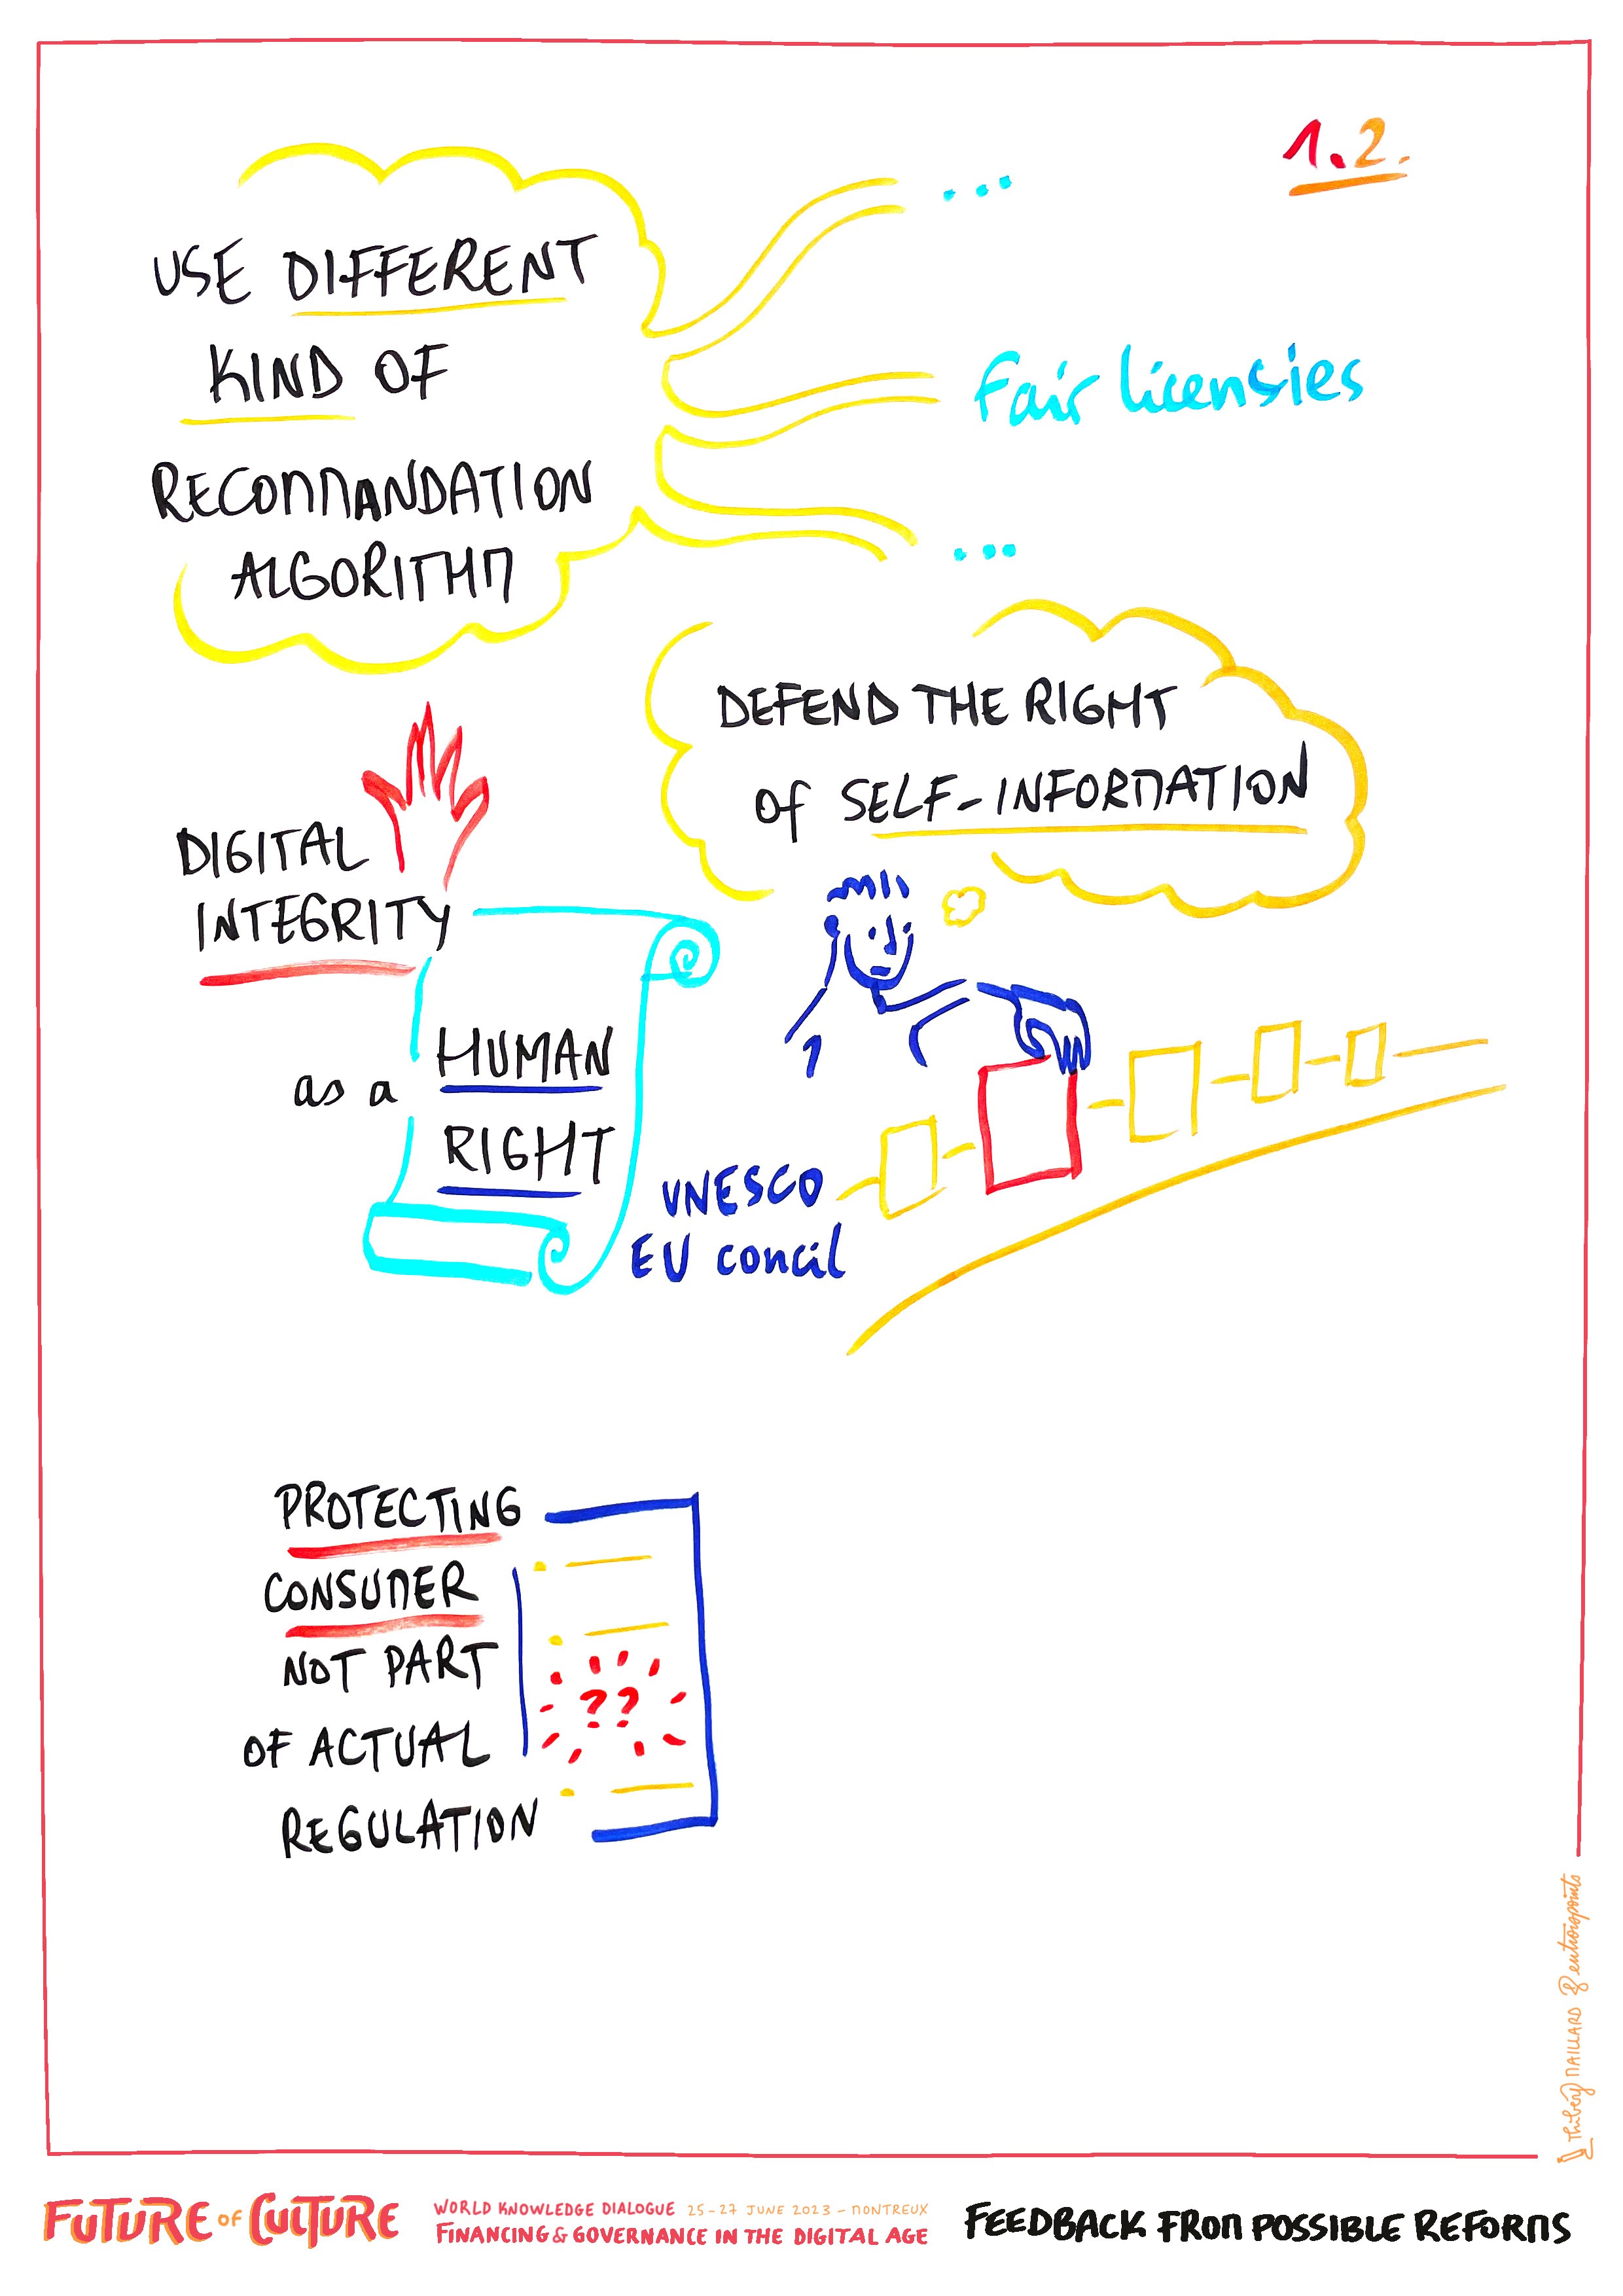 1.2.
USE DIFFERENT
KIND OF
RECOMMANDATION
ALGORITHM
...
Fair licensies
...
DEFEND THE RIGHT
of SELF-INFORMATION
DIGITAL
INTEGRITY
as a
HUMAN
RIGHT
UNESCO
EU concil
PROTECTING
CONSUMER
NOT PART
OF ACTUAL
REGULATION
??
Thibéry MAILLARD & entroropoints
FUTURE OF CULTURE
WORLD KNOWLEDGE DIALOGUE 25-27 JUNE 2023 - MONTREUX
FINANCING & GOVERNANCE IN THE DIGITAL AGE
FEEDBACK FROM POSSIBLE REFORMS